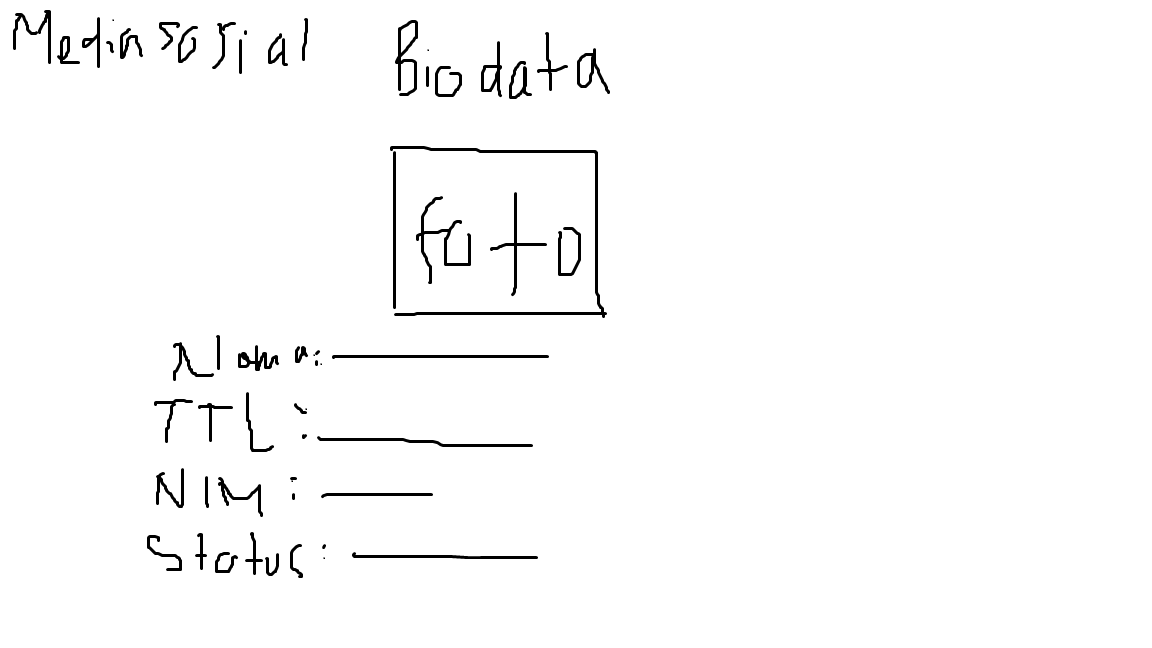 Media sosial
Biodata
foto
Nama:
TTL :
NIM :
Status: